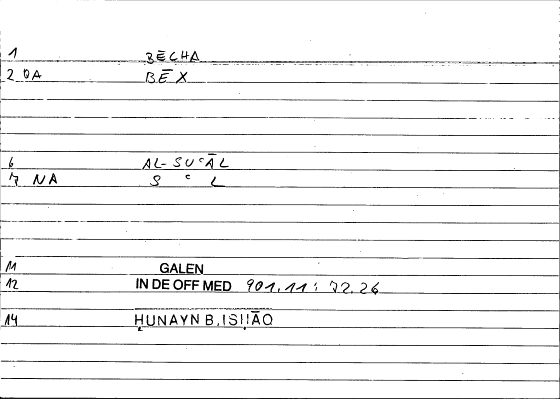 1 BĒCHA
2 QA BĒX
6 AL-SUʿĀL
7 NA S ʿ L
11 GALEN
12 IN DE OFF MED 901.11: 72.26
14 ḤUNAYN B. ISḤĀQ